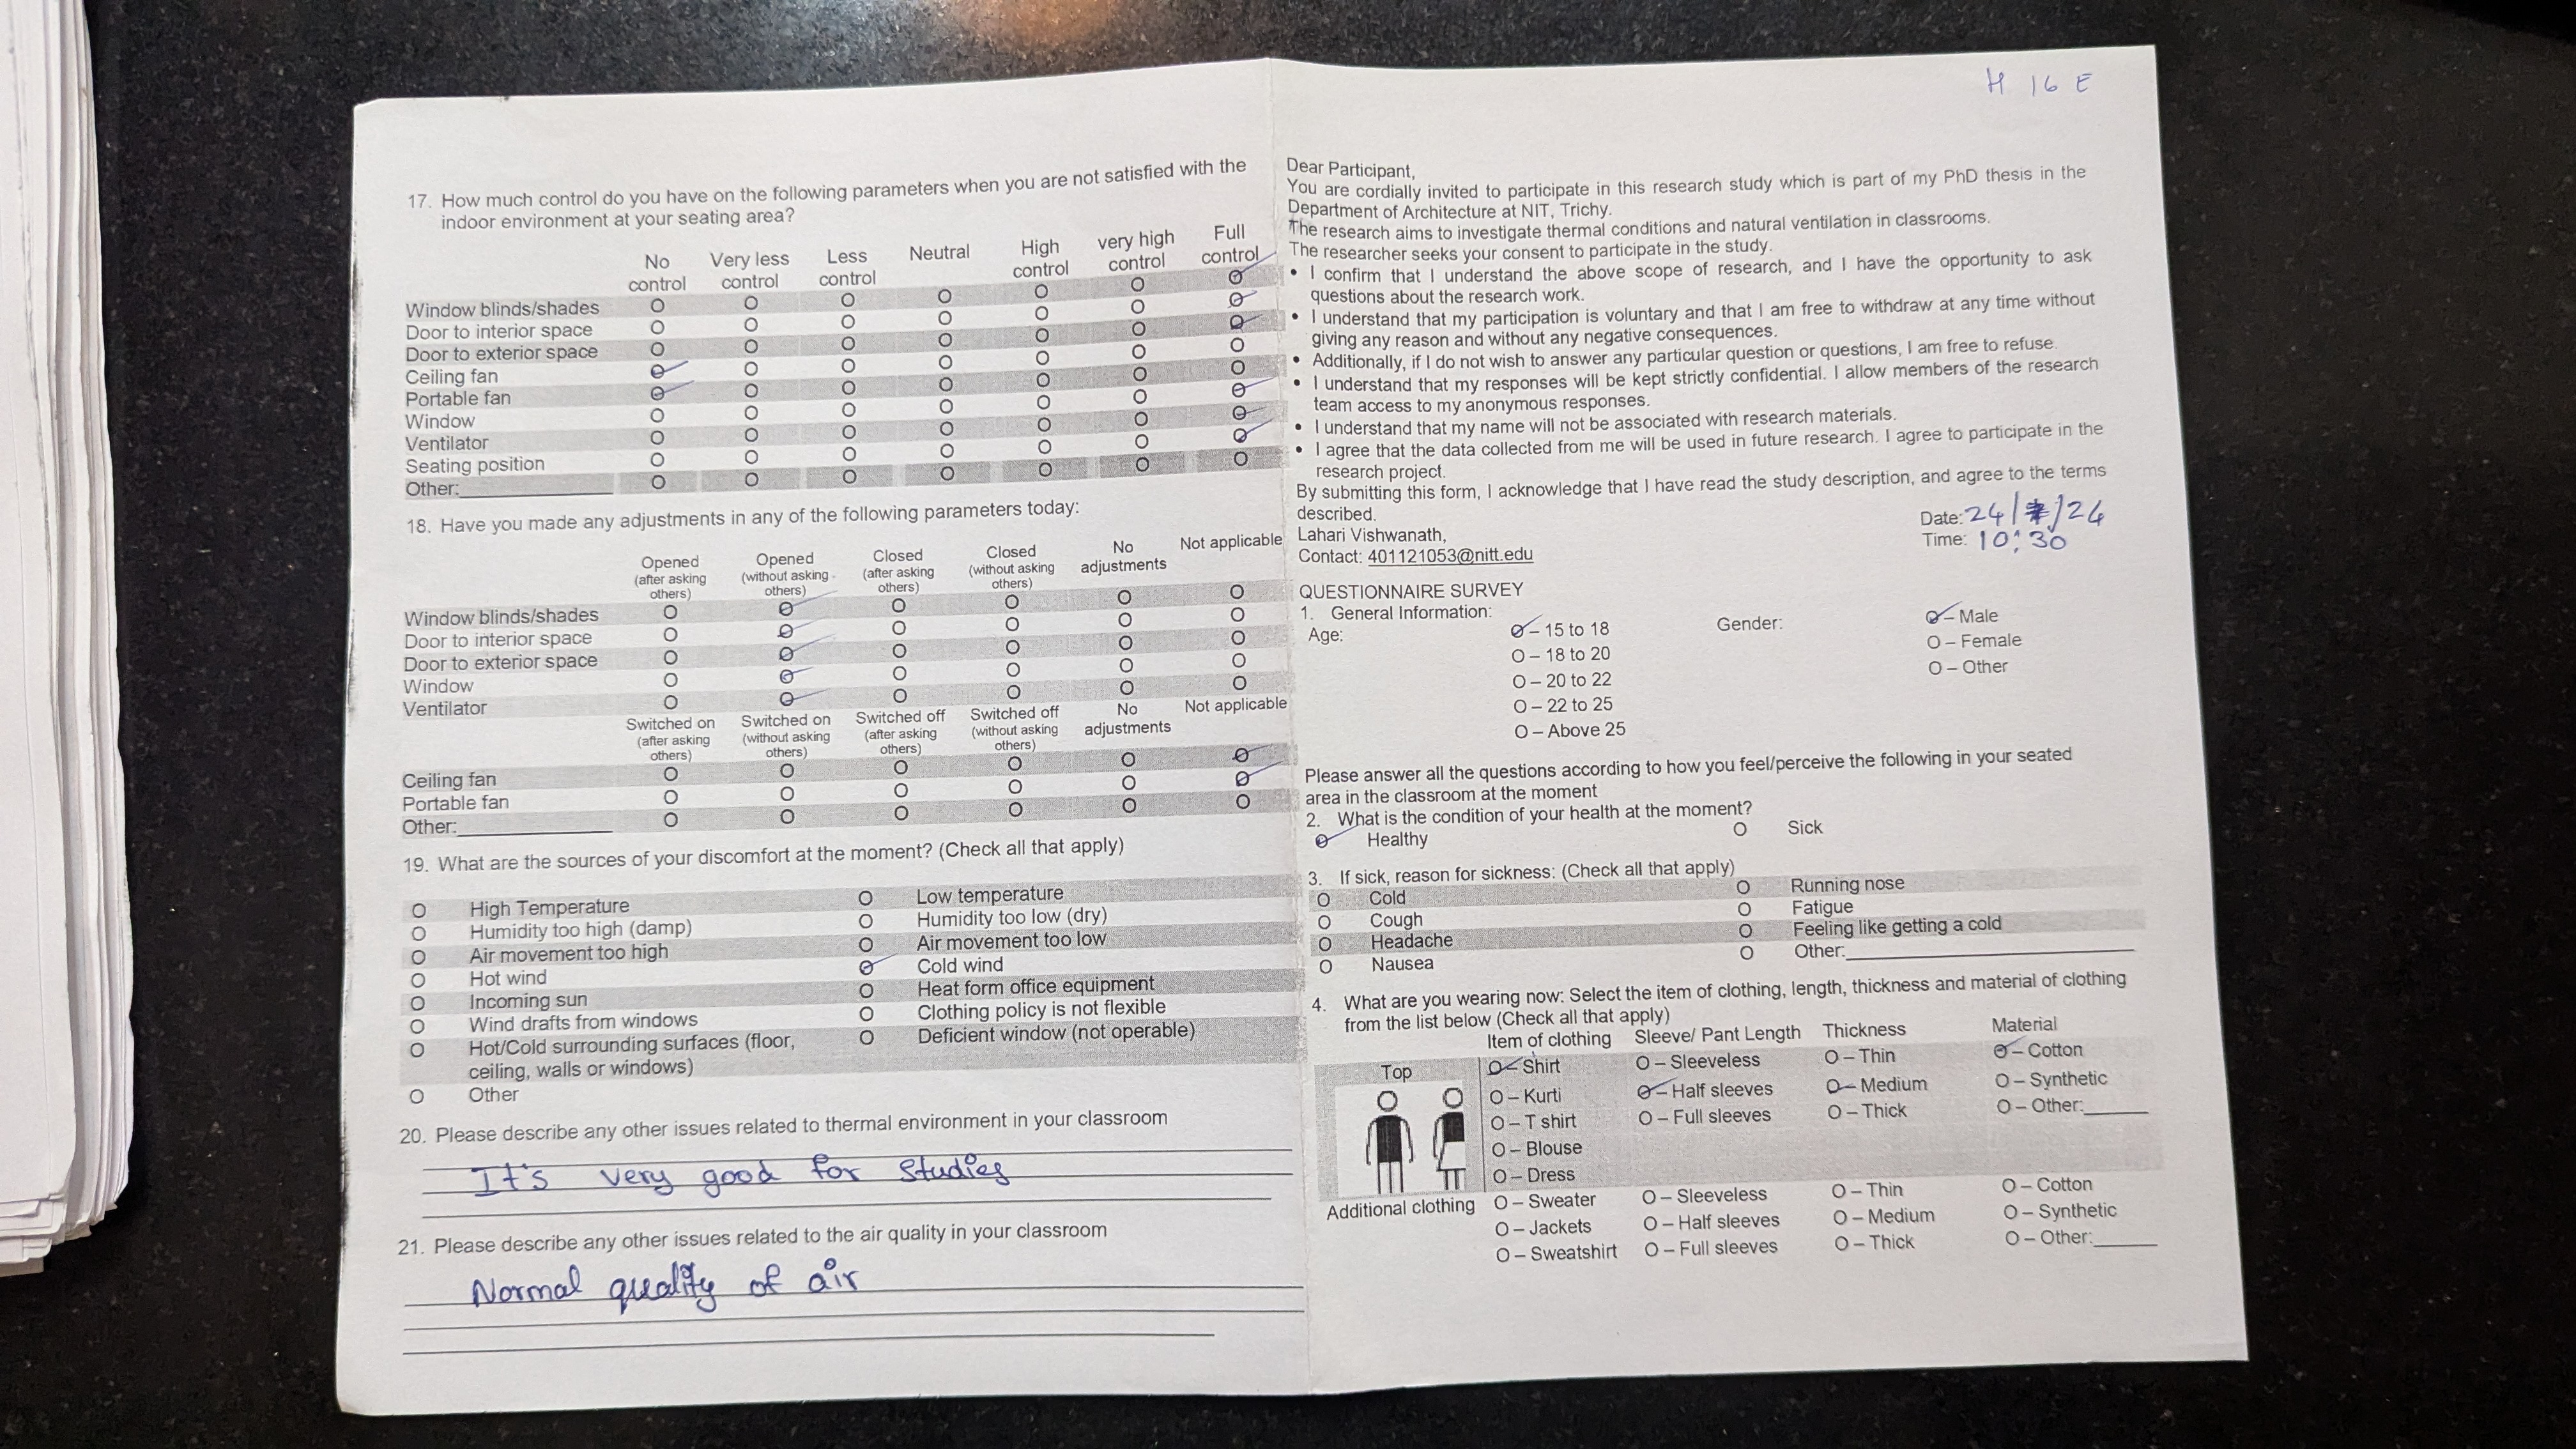 17. How much control do you have on the following parameters when you are not satisfied with the
indoor environment at your seating area?
No control Very less control Less control Neutral High control very high control Full control
Window blinds/shades O O O O O O O
Door to interior space O O O O O O O
Door to exterior space O O O O O O O
Ceiling fan O O O O O O O
Portable fan O O O O O O O
Window O O O O O O O
Ventilator O O O O O O O
Seating position O O O O O O O
Other: O O O O O O O
18. Have you made any adjustments in any of the following parameters today:
Opened (after asking others) Opened (without asking others) Closed (after asking others) Closed (without asking others) No adjustments Not applicable
Window blinds/shades O O O O O O
Door to interior space O O O O O O
Door to exterior space O O O O O O
Window O O O O O O
Ventilator O O O O O O
Switched on (after asking others) Switched on (without asking others) Switched off (after asking others) Switched off (without asking others) No adjustments Not applicable
Ceiling fan O O O O O O
Portable fan O O O O O O
Other: O O O O O O
19. What are the sources of your discomfort at the moment? (Check all that apply)
O High Temperature O Low temperature
O Humidity too high (damp) O Humidity too low (dry)
O Air movement too high O Air movement too low
O Hot wind O Cold wind
O Incoming sun O Heat form office equipment
O Wind drafts from windows O Clothing policy is not flexible
O Hot/Cold surrounding surfaces (floor, O Deficient window (not operable)
ceiling, walls or windows)
O Other
20. Please describe any other issues related to thermal environment in your classroom
It's very good for studies
21. Please describe any other issues related to the air quality in your classroom
Normal quality of air
H 16 E
Dear Participant,
You are cordially invited to participate in this research study which is part of my PhD thesis in the
Department of Architecture at NIT, Trichy.
The research aims to investigate thermal conditions and natural ventilation in classrooms.
The researcher seeks your consent to participate in the study.
• I confirm that I understand the above scope of research, and I have the opportunity to ask
questions about the research work.
• I understand that my participation is voluntary and that I am free to withdraw at any time without
giving any reason and without any negative consequences.
• Additionally, if I do not wish to answer any particular question or questions, I am free to refuse.
• I understand that my responses will be kept strictly confidential. I allow members of the research
team access to my anonymous responses.
• I understand that my name will not be associated with research materials.
• I agree that the data collected from me will be used in future research. I agree to participate in the
research project.
By submitting this form, I acknowledge that I have read the study description, and agree to the terms
described.
Lahari Vishwanath,
Contact: 401121053@nitt.edu
Date: 24/ /24
Time: 10:30
QUESTIONNAIRE SURVEY
1. General Information:
Age: O – 15 to 18 Gender: O – Male
O – 18 to 20 O – Female
O – 20 to 22 O – Other
O – 22 to 25
O – Above 25
Please answer all the questions according to how you feel/perceive the following in your seated
area in the classroom at the moment
2. What is the condition of your health at the moment?
O Healthy O Sick
3. If sick, reason for sickness: (Check all that apply)
O Cold O Running nose
O Cough O Fatigue
O Headache O Feeling like getting a cold
O Nausea O Other:
4. What are you wearing now: Select the item of clothing, length, thickness and material of clothing
from the list below (Check all that apply)
Item of clothing Sleeve/ Pant Length Thickness Material
Top O – Shirt O – Sleeveless O – Thin O – Cotton
O – Kurti O – Half sleeves O – Medium O – Synthetic
O – T shirt O – Full sleeves O – Thick O – Other:
O – Blouse
O – Dress
Additional clothing O – Sweater O – Sleeveless O – Thin O – Cotton
O – Jackets O – Half sleeves O – Medium O – Synthetic
O – Sweatshirt O – Full sleeves O – Thick O – Other: